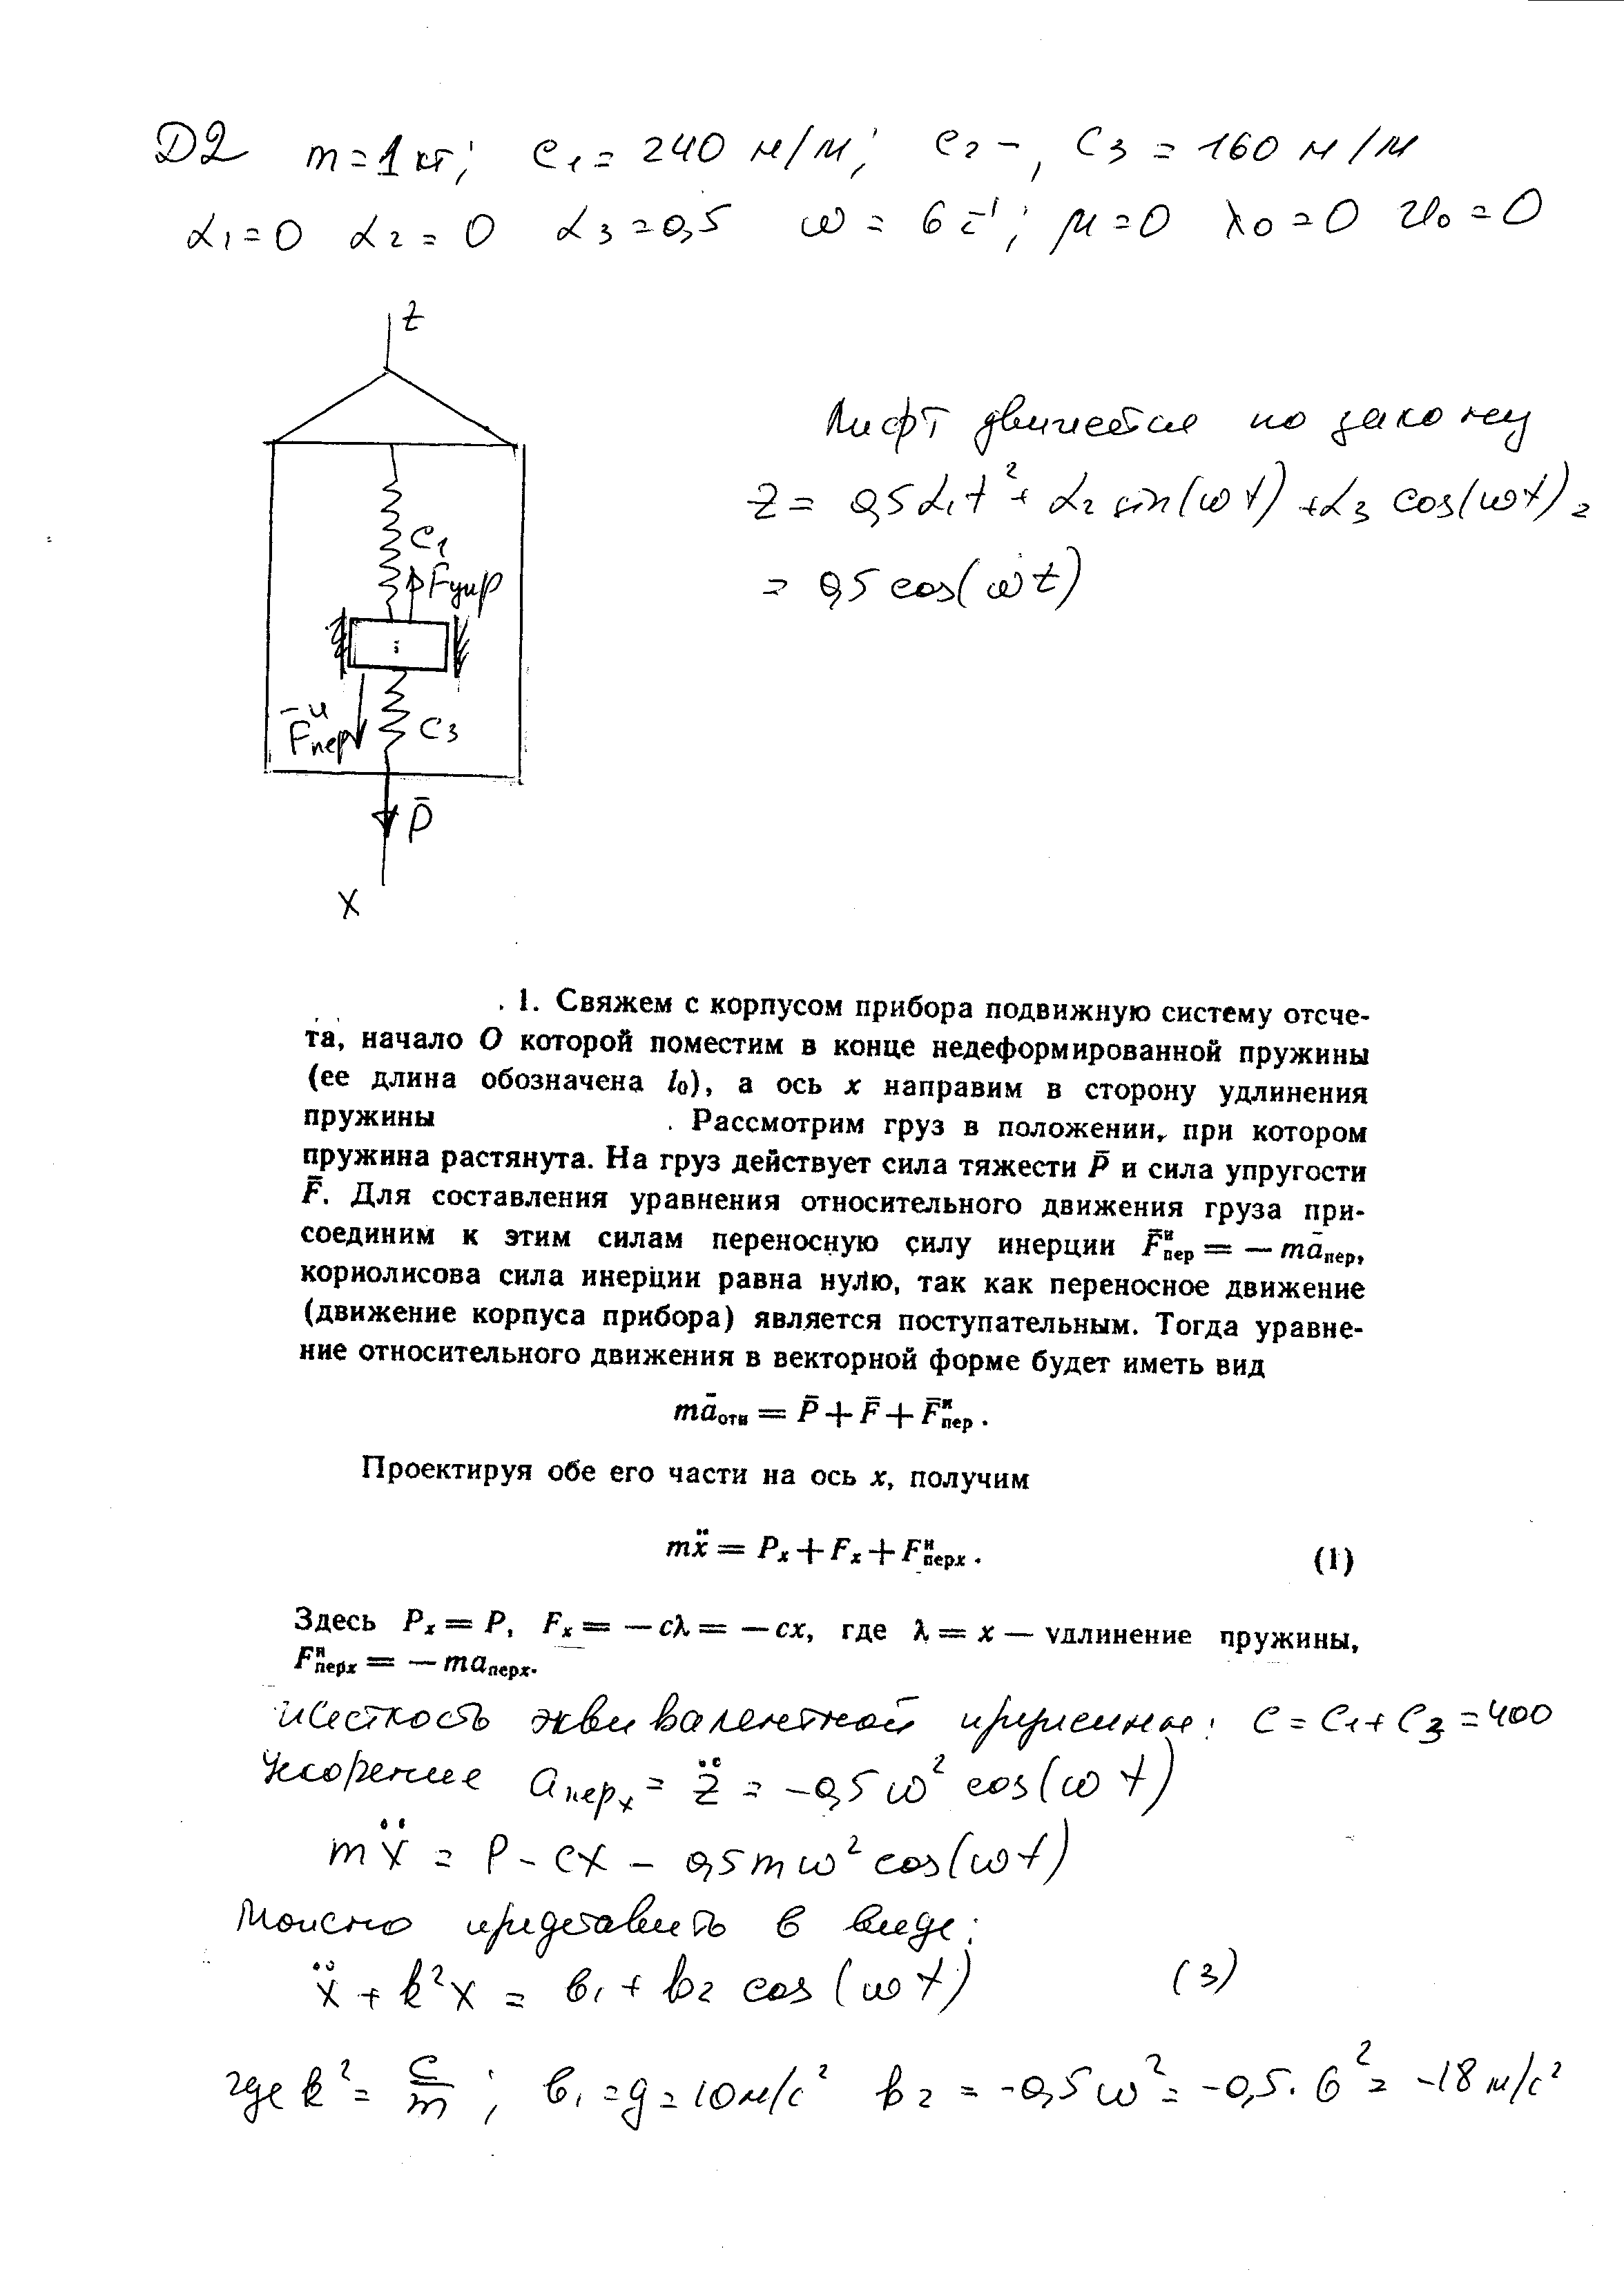 Д2 m = 1 кг; c₁ = 240 н/м; c₂ –, c₃ = 160 н/м
α₁ = 0 α₂ = 0 α₃ = 0,5 ω = 6 c⁻¹; μ = 0 λ₀ = 0 v₀ = 0
z
Лифт движется по закону
z = 0,5α₁t² + α₂ sin(ωt) + α₃ cos(ωt) =
= 0,5 cos(ωt)
c₁
Fупр
F̄ᵘпер
c₃
P̄
x
. 1. Свяжем с корпусом прибора подвижную систему отсче-
та, начало O которой поместим в конце недеформированной пружины
(ее длина обозначена l₀), а ось x направим в сторону удлинения
пружины . Рассмотрим груз в положении, при котором
пружина растянута. На груз действует сила тяжести P̄ и сила упругости
F̄. Для составления уравнения относительного движения груза при-
соединим к этим силам переносную силу инерции F̄ᴎпер = — māпер,
кориолисова сила инерции равна нулю, так как переносное движение
(движение корпуса прибора) является поступательным. Тогда уравне-
ние относительного движения в векторной форме будет иметь вид
māотн = P̄ + F̄ + F̄ᴎпер.
Проектируя обе его части на ось x, получим
mẍ = Pₓ + Fₓ + Fᴎперx. (1)
Здесь Pₓ = P, Fₓ = — cλ = — cx, где λ = x — удлинение пружины,
Fᴎперx = — maперx.
Жесткость эквивалентной пружины: c = c₁ + c₃ = 400
Ускорение aперx = z̈ = -0,5 ω² cos(ωt)
mẍ = P - cx - 0,5mω² cos(ωt)
Можно представить в виде:
ẍ + k²x = b₁ + b₂ cos(ωt) (3)
где k² = c/m; b₁ = g = 10 м/c² b₂ = -0,5ω² = -0,5·6² = -18 м/c²